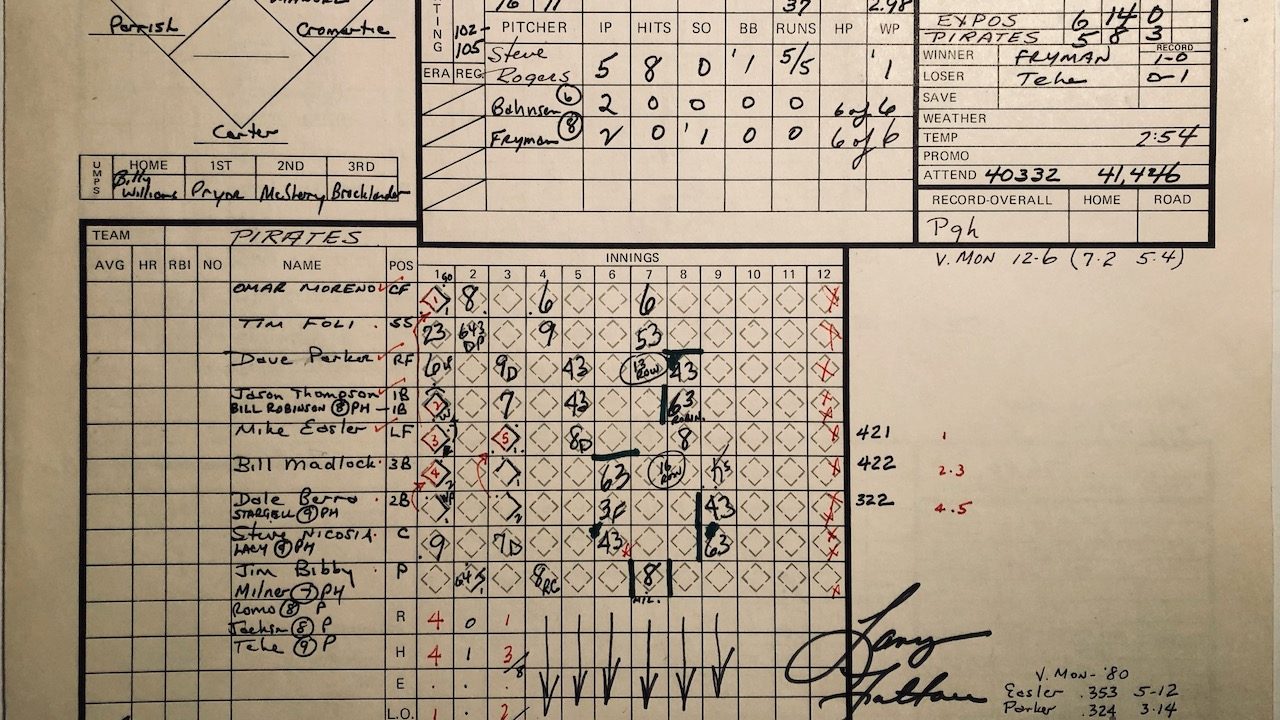 Parrish
Cromartie
Carter
UMPS HOME 1ST 2ND 3RD
Billy Williams Pryor McSherry Brocklander
TING 102-105
ERA REG
16 11 37 2.98
PITCHER IP HITS SO BB RUNS HP WP
Steve Rogers 5 8 0 1 5/5 1
Bahnsen 6 2 0 0 0 0 6 of 6
Fryman 8 2 0 1 0 0 6 of 6
EXPOS 6 14 0
PIRATES 5 8 3
WINNER FRYMAN RECORD 1-0
LOSER Teke 0-1
SAVE
WEATHER
TEMP 2:54
PROMO
ATTEND 40332 41,426
RECORD-OVERALL HOME ROAD
Pgh
V. MON 12-6 (7-2 5-4)
TEAM PIRATES
AVG HR RBI NO NAME POS
INNINGS
1 2 3 4 5 6 7 8 9 10 11 12
OMAR MORENO CF 1 8 6 6
TIM FOLI SS 23 643 DP 9 53
Dave Parker RF 9D 43 13 ROW 43
Jason Thompson 1B 2 7 43 63
BILL ROBINSON 8 PH - 1B
Mike Easler LF 3 5 8D 8
421 1
Bill Madlock 3B 4 63 16 ROW
422 2.3
Dale Berra 2B WP 43
STARGELL 9 PH
322 4.5
Steve NICOSIA C 9 7D 43 63
LACY 9 PH
Jim Bibby P 8
Milner 7 PH MIL.
Romo 8 P
Jackson 8 P
Teke 9 P
R 4 0 1
H 4 1 3/8
E
L.O. 1 2
Lanny Frattare
V. MON - '80
Easler .353 5-12
Parker .324 3-14